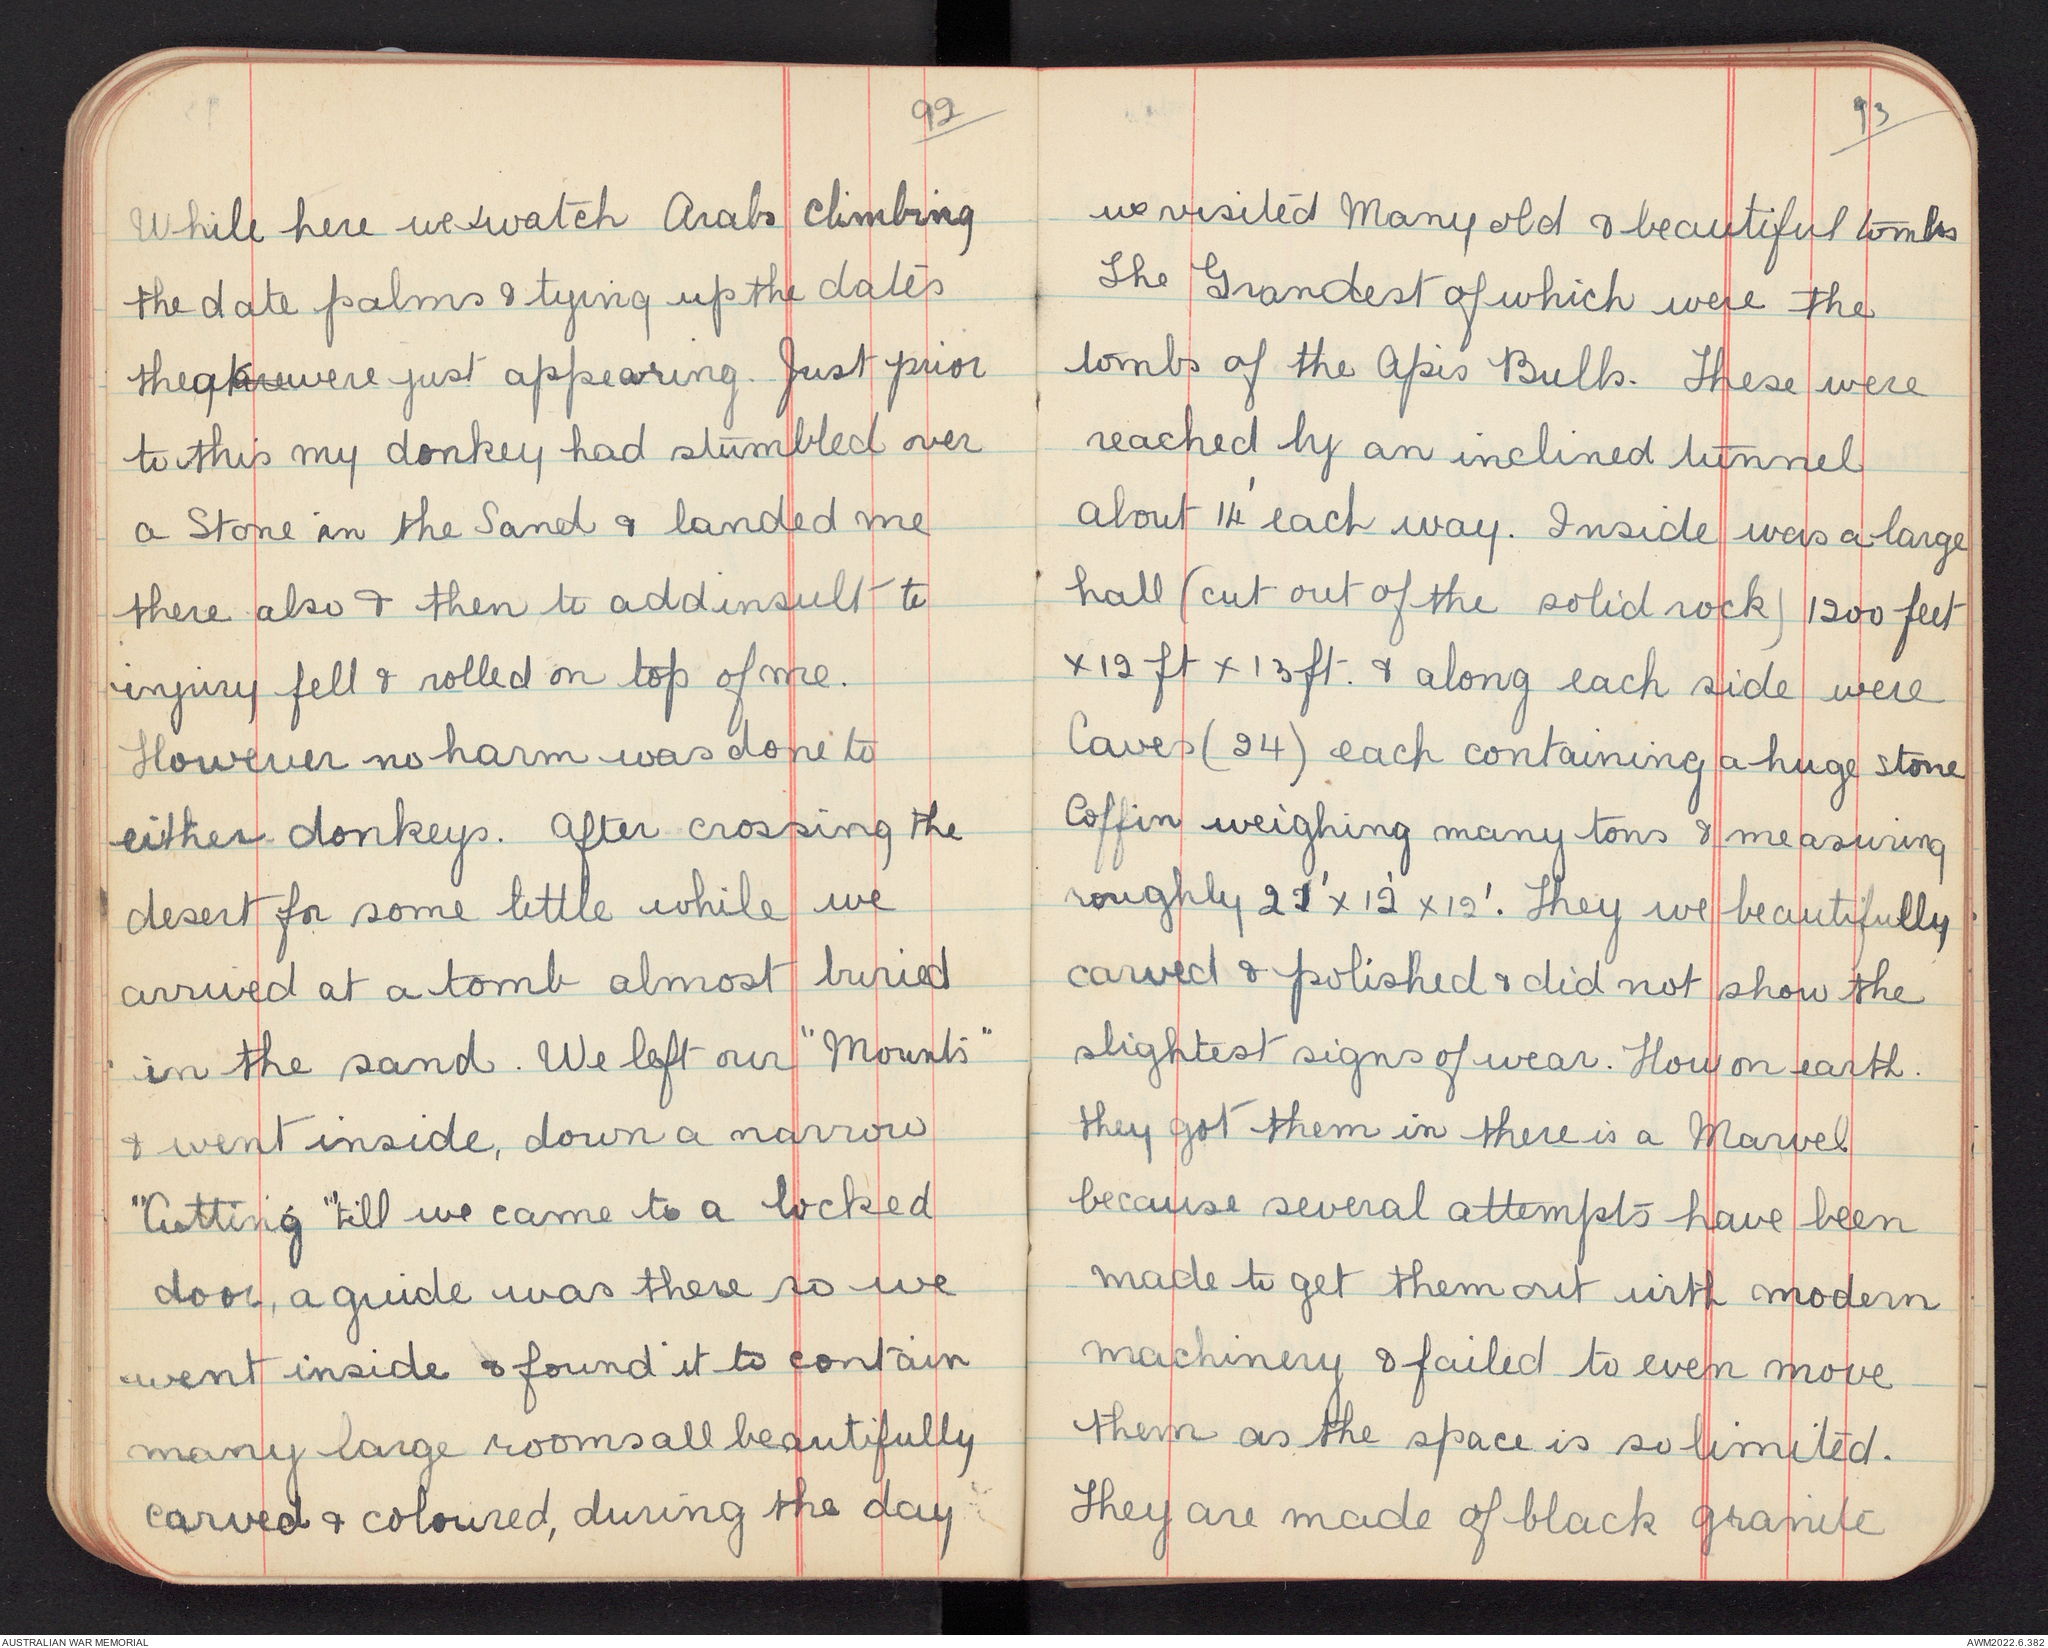 92
While here we watch Arabs climbing
the date palms & tying up the dates
they are were just appearing. Just prior
to this my donkey had stumbled over
a Stone in the Sand & landed me
there also & then to add insult to
injury fell & rolled on top of me.
However no harm was done to
either donkeys. After crossing the
desert for some little while we
arrived at a tomb almost buried
in the sand. We left our "Mounts"
& went inside, down a narrow
"Cutting" till we came to a locked
door, a guide was there so we
went inside & found it to contain
many large rooms all beautifully
carved & coloured, during the day
93
we visited Many old & beautiful tombs
The Grandest of which were the
tombs of the Apis Bulls. These were
reached by an inclined tunnel
about 14' each way. Inside was a large
hall (cut out of the solid rock) 1200 feet
x 12 ft x 13 ft. & along each side were
Caves (24) each containing a huge stone
Coffin weighing many tons & measuring
roughly x 12' x 12'. They we beautifully
carved & polished & did not show the
slightest signs of wear. How on earth.
they got them in there is a Marvel
because several attempts have been
made to get them out with modern
machinery & failed to even move
them as the space is so limited.
They are made of black granite
AUSTRALIAN WAR MEMORIAL
AWM2022.6.382